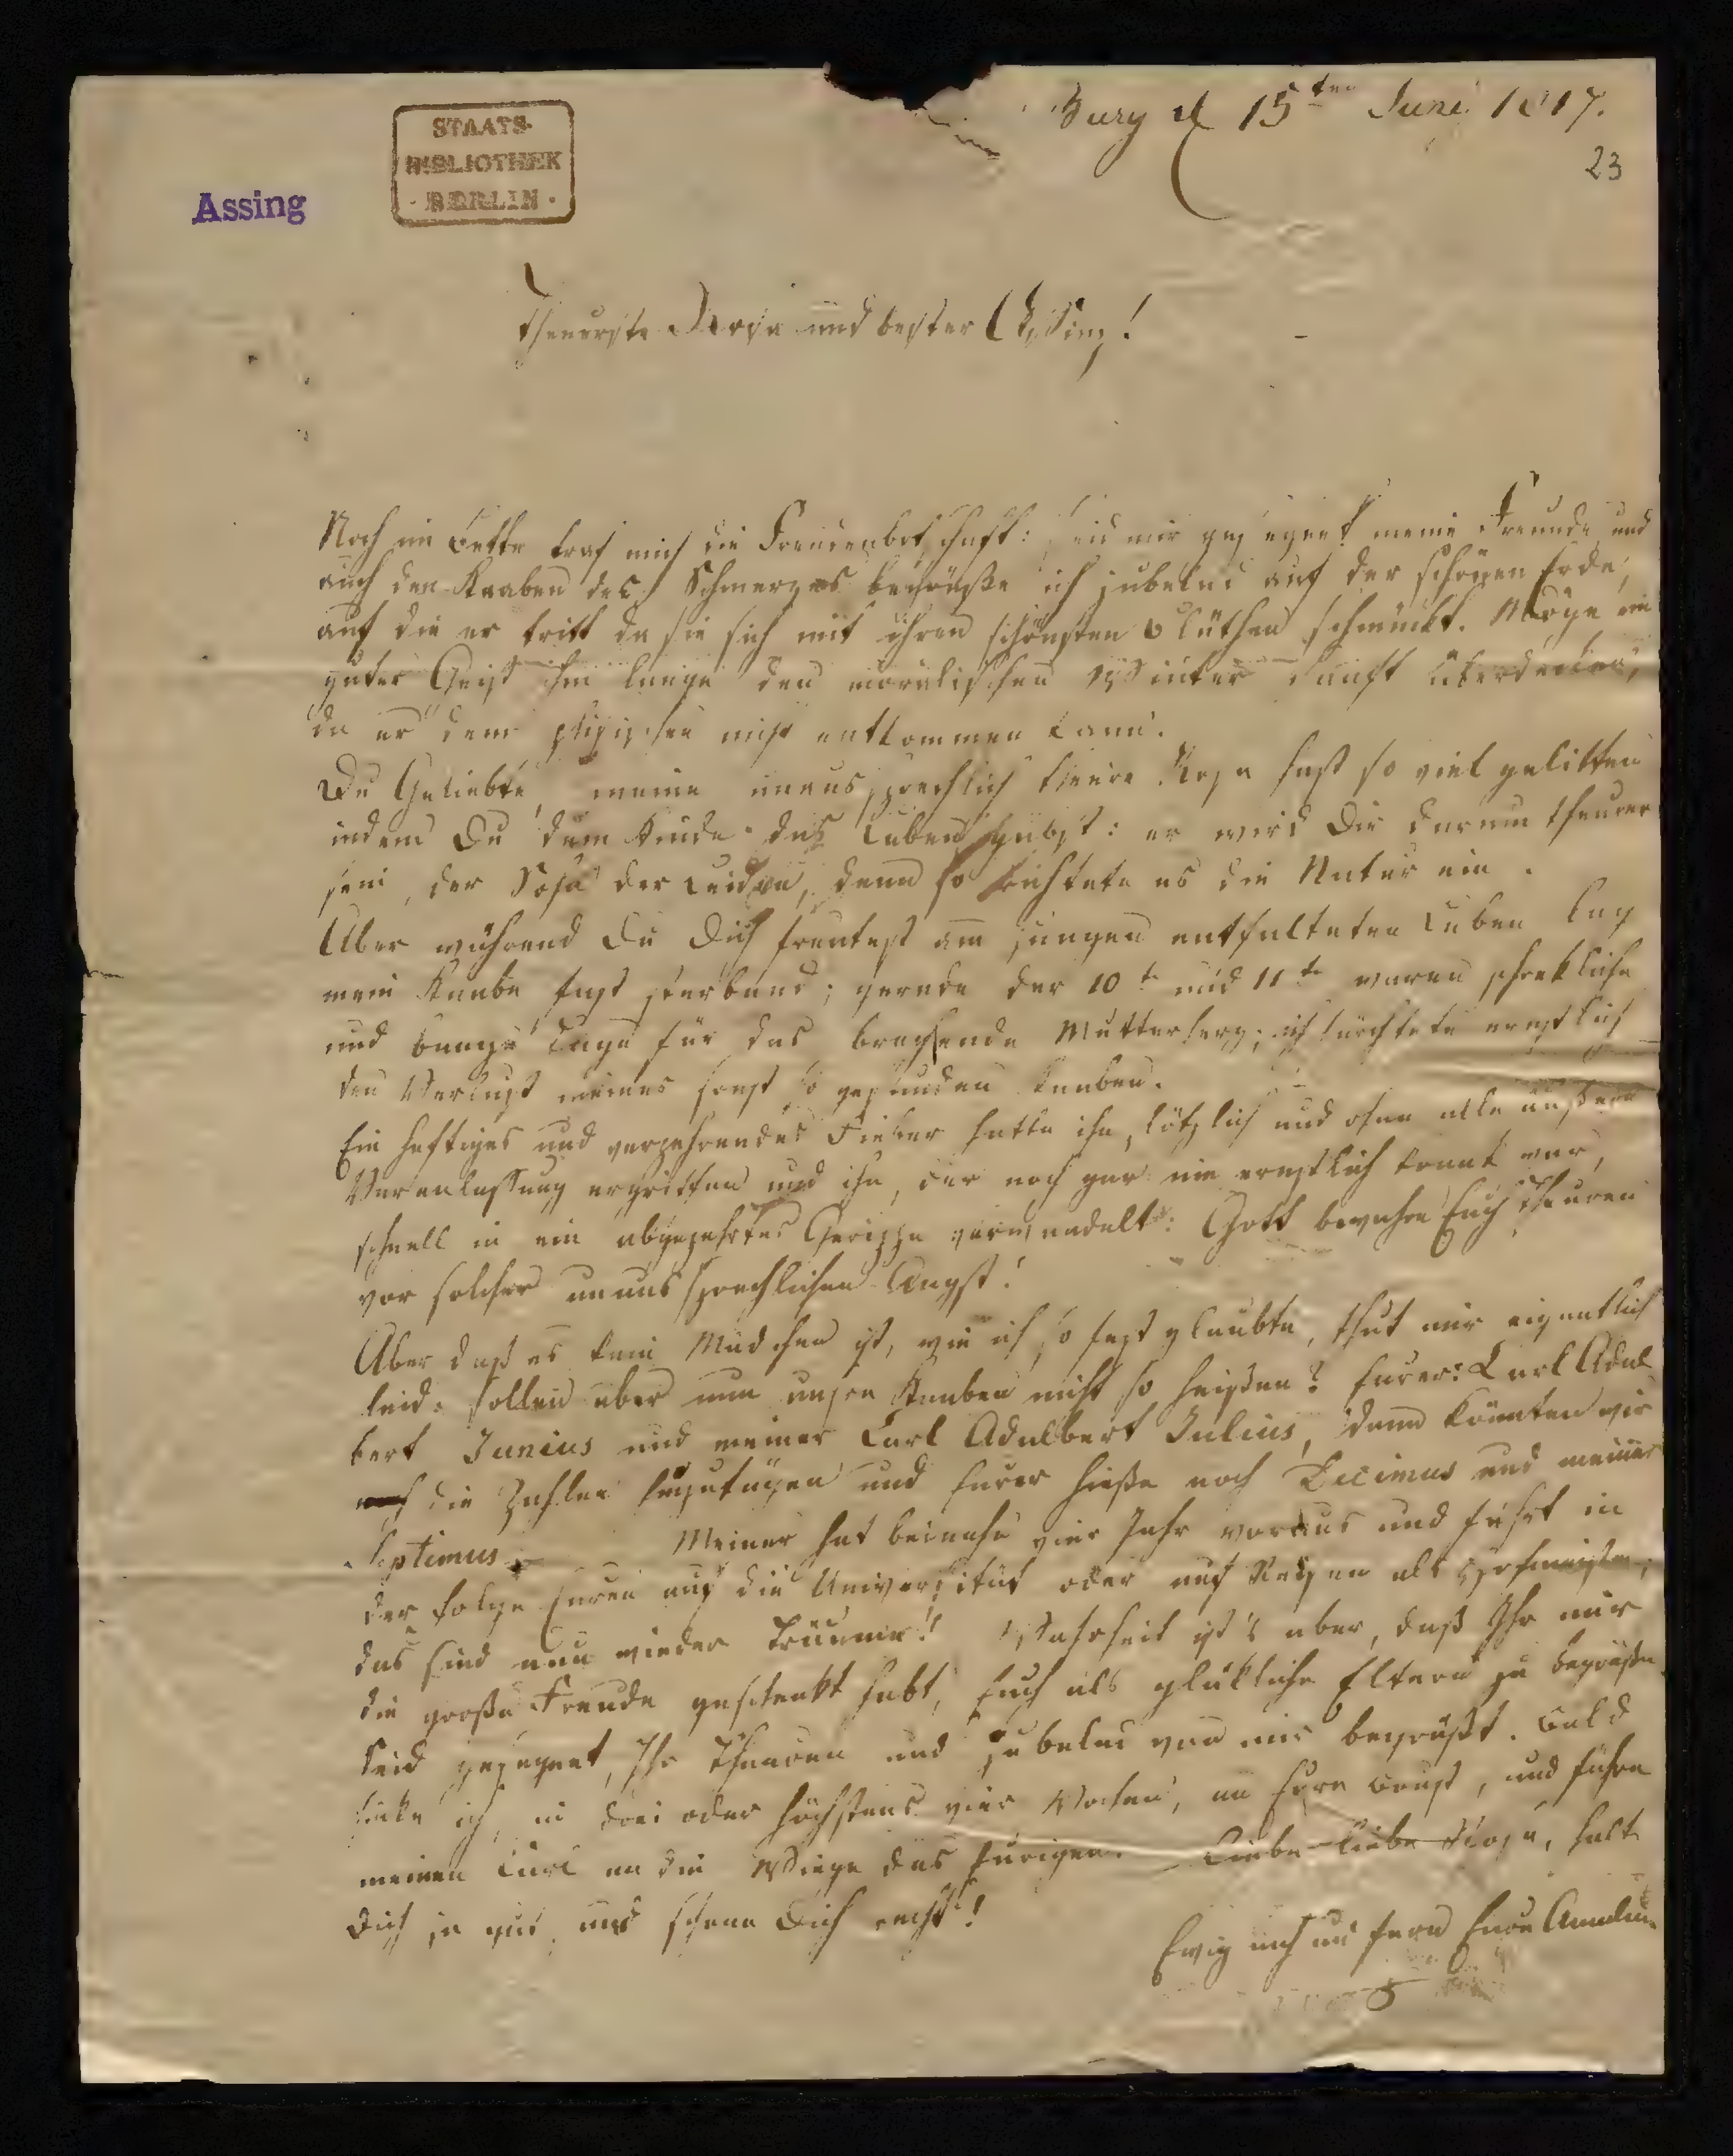 Burg d 15ten Juni 1817.
23
STAATS-
BIBLIOTHEK
· BERLIN ·
Assing
Theuerste Rosa und bester Assing!
Noch im Bette traf mich die Freudenbotschaft: Seid mir gesegnet meine Freunde und
auch den Knaben des Schmerzes begrüße ich jubelnd auf der schönen Erde,
auf die er tritt da sie sich mit ihren schönsten Blüthen schmückt. Möge ein
guter Geist ihm lange den moralischen Winter sanft überdecken,
da er dem phisischen nicht entkommen kann.
Du Geliebte, meine unaussprechlich theure Rosa hast so viel gelitten
indem Du dem Kinde das Leben gabst: er wird Dir darum theurer
sein, der Sohn der Leiden, denn so richtete es die Natur ein.
Aber während Du Dich freutest am jungen entfalteten Leben lag
mein Knabe fast sterbend; gerade der 10te und 11te waren schrekliche
und bange Tage für das brechende Mutterherz; ich fürchtete ernstlich
den Verlust meines sonst so gesunden Knaben.
Ein heftiges und verzehrendes Fieber hatte ihn plötzlich und ohne alle äußere
Veranlassung ergriffen und ihn, der noch gar nie ernstlich krank war,
schnell in ein abgezehrtes Gerippe verwandelt: Gott bewahre Euch Theuren
vor solcher unaussprechlichen Angst!
Aber daß es kein Mädchen ist, wie ich so fest glaubte, thut mir eigentlich
leid. Sollen aber nun unsre Knaben nicht so heißen? Eurer: Carl Adal
bert Junius und meiner Carl Adalbert Julius, dann könnten wir
noch die Zahlen hinzufügen und Eurer hieße noch Decimus und meiner
Septimus. Meiner hat beinahe vier Jahr voraus und führt in
der Folge Euren auf die Universität oder auf Reisen als Hofmeister;
das sind nun wieder Träume! Wahrheit ist's aber, daß Ihr mir
die große Freude geschenkt habt, Euch als glükliche Eltern zu begrüßen.
Seid gesegnet, Ihr Theuren und jubelnd von mir begrüßt. Bald
sinke ich, in drei oder höchstens vier Wochen, an Eure Brust, und führe
meinen Carl an die Wiege des Eurigen. Liebe liebe Rosa, halte
Dich ja gut und schone Dich recht!
Ewig nah und fern Eure Amalia